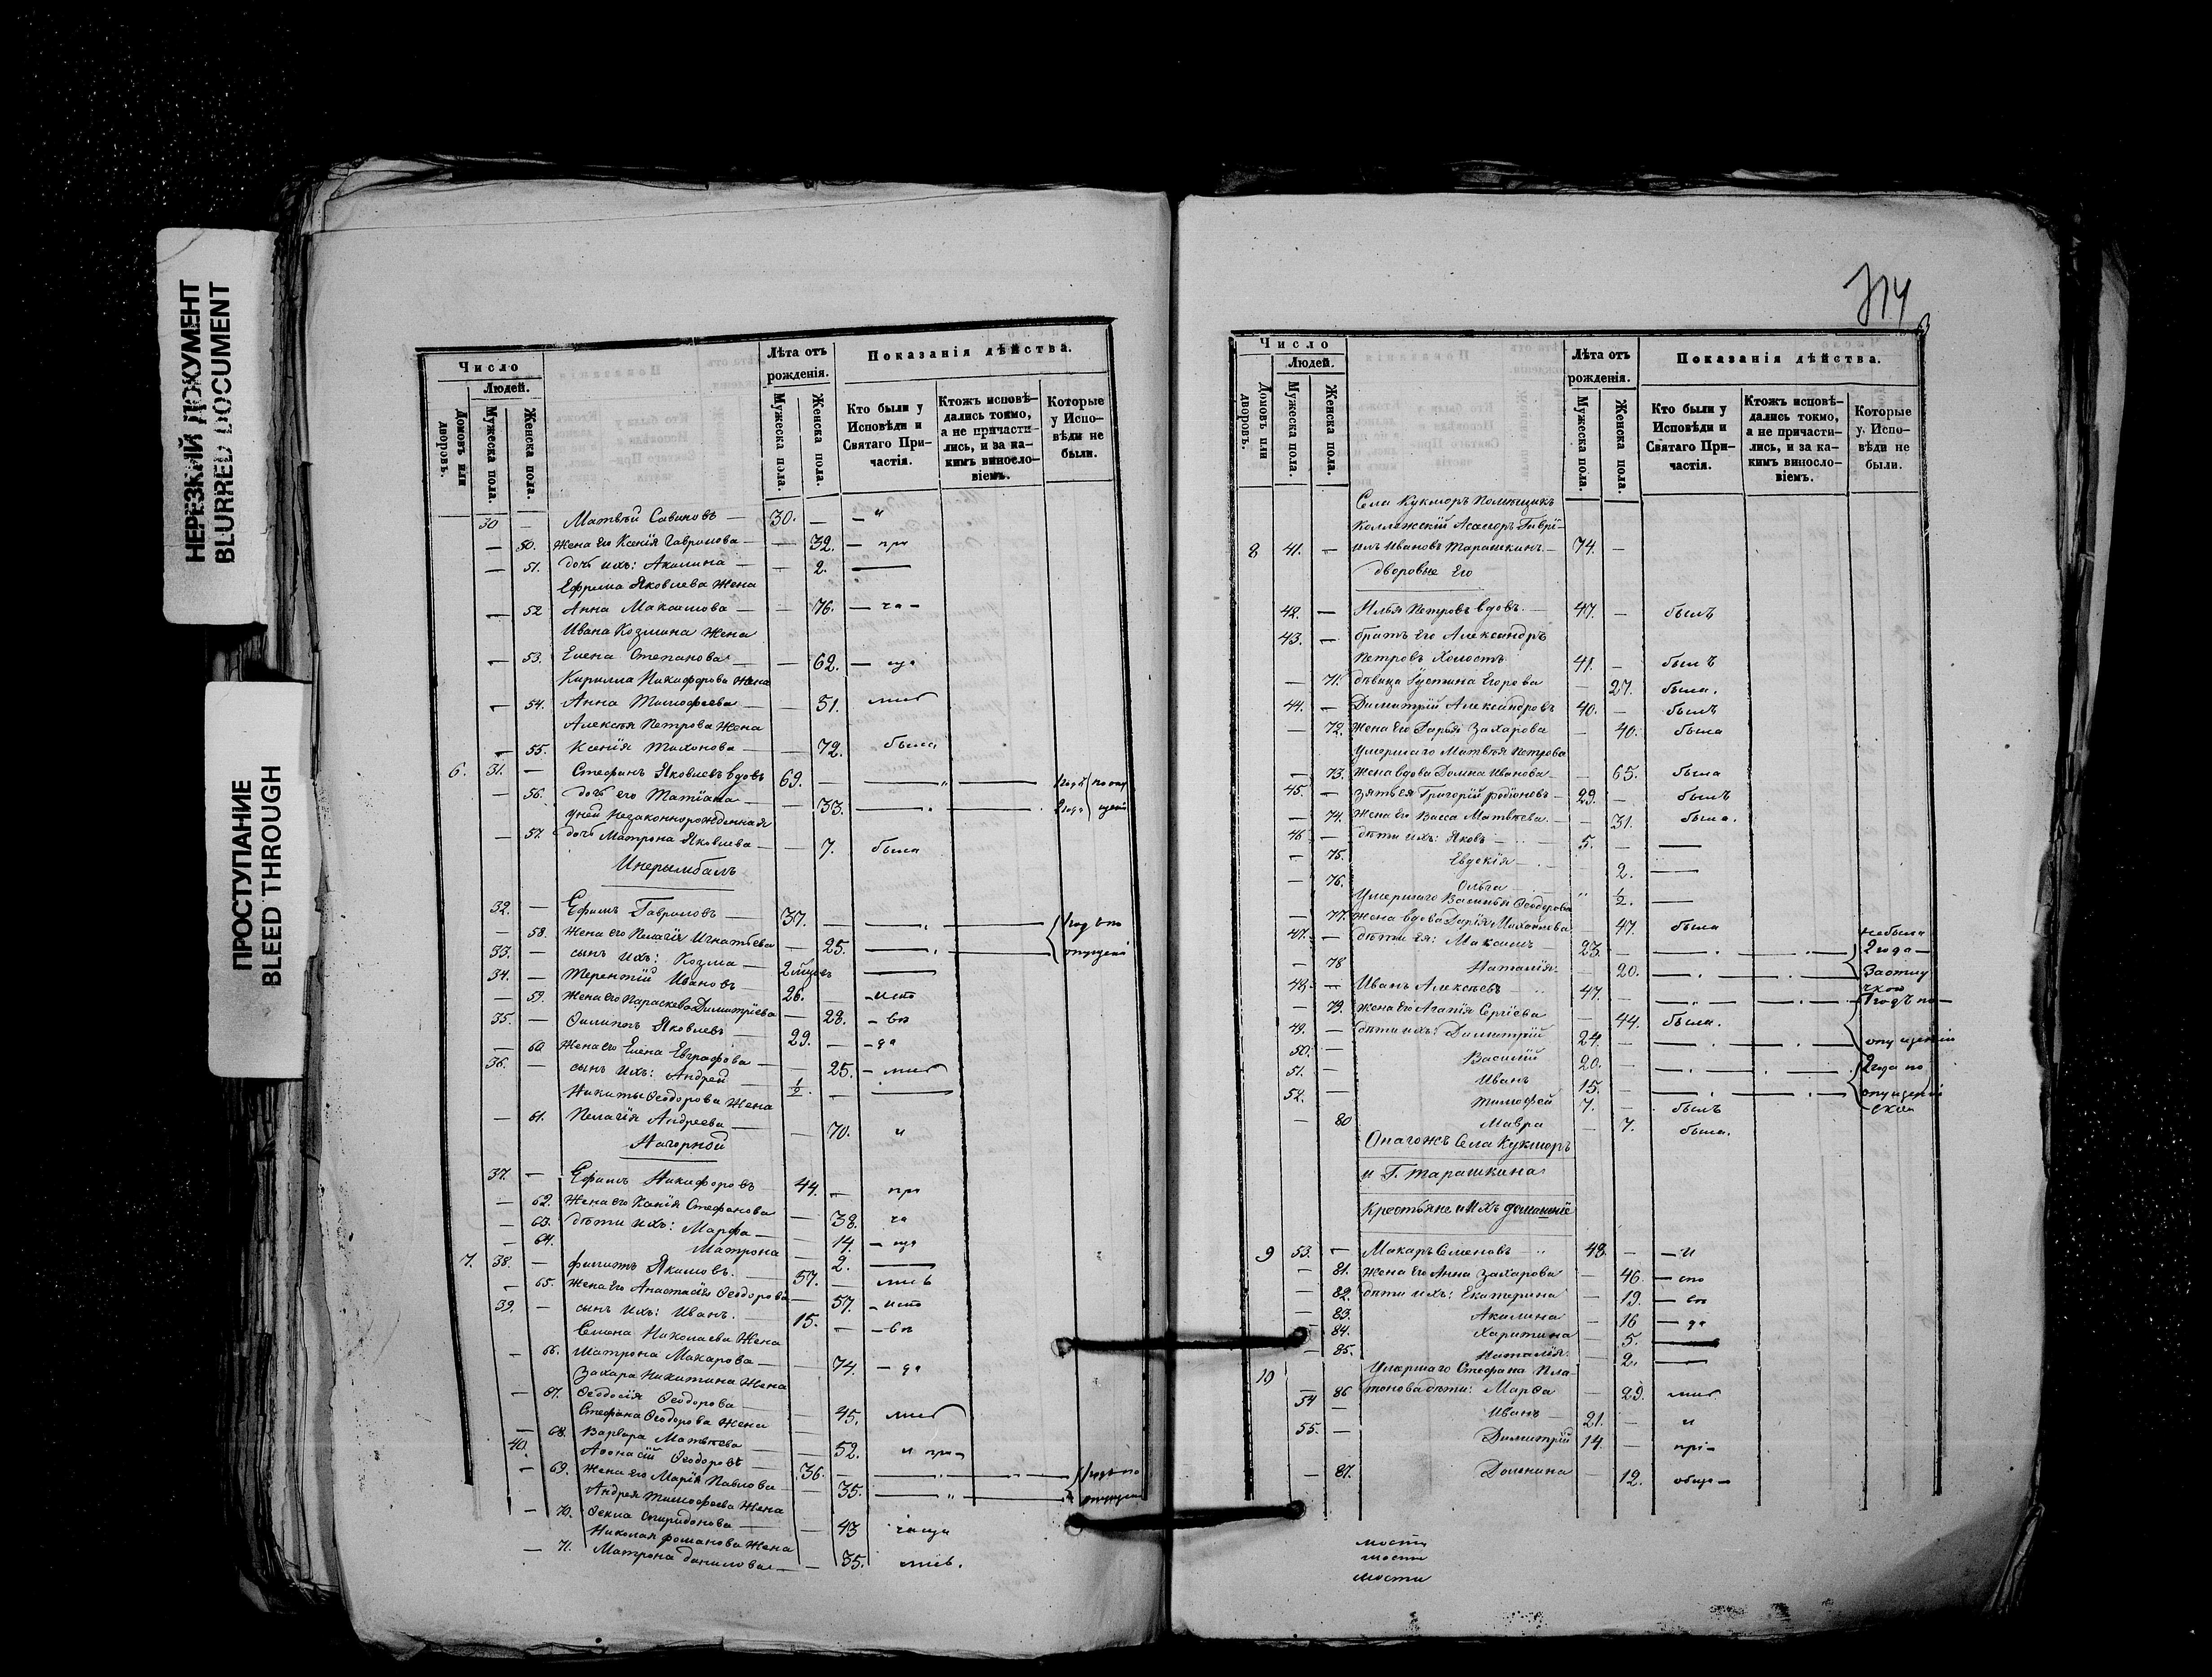 НЕРЕЗКИЙ ДОКУМЕНТ
BLURRED DOCUMENT
ПРОСТУПАНИЕ
BLEED THROUGH
Число
Людей.
Домовъ или дворовъ.
Мужеска пола.
Женска пола.
Лѣта отъ рожденія.
Мужеска пола.
Женска пола.
Показанія дѣйства.
Кто были у Исповѣди и Святаго Причастія.
Ктожъ исповѣдались токмо, а не причастились, и за какимъ винословіемъ.
Которые у Исповѣди не были.
30 — Матвѣй Савиновъ — 30. — — и
— 50. жена его Ксенія Гаврилова — — 32. — при
— 51. дочь ихъ: Акилина — — 2. —
Ефрема Яковлева жена
— 52 Анна Максимова — — 76. — ча —
Ивана Козмина жена
— 53. Елена Степанова — — 62. — ща
Кирилла Никифорова жена
— 54. Анна Тимофеева — — 51. лись
Алексѣя Петрова жена
— 55. Ксенія Тихонова — — 72. была
6. 31. — Стефанъ Яковлевъ вдовъ 69. —
— 56. дочь его Татіана — — 33. —
у ней незаконнорожденная
— 57. дочь Матрона Яковлева — — 7. была
32. — Ефимъ Гавриловъ — 37. —
— 58. жена его Пелагія Игнатьева — 25. —
33. — сынъ ихъ: Козма —
34. — Терентій Ивановъ — 26. — — испо
— 59. жена его Параскева Димитріева — 28. — вѣ
35. — Филиппъ Яковлевъ 29. — — да
— 60 жена его Елена Евграфова — — 25. — лись
36. — сынъ ихъ: Андрей — ½. —
Никиты Ѳеодорова жена
— 61. Пелагія Андреева — — 70. и
Нагорной
37. — Ефимъ Никифоровъ 44. — при
— 62. жена его Ксенія Стефанова — 38. ча
— 63. дѣти ихъ: Марфа — — 14. — ща
— 64. Матрона — 2. —
7. 38. — Филиппъ Якимовъ. 57. — лись
— 65. жена его Анастасія Ѳеодорова — 57. — испо
39. — сынъ ихъ: Иванъ. 15. — — вѣ
Семена Николаева жена
— 66. Матрона Макарова — — 74. — да
Захара Никитина жена
— 67. Ѳеодосія Ѳеодорова — — 45. лись
Стефана Ѳеодорова жена
— 68. Варвара Матвѣева — — 52. и при —
40. Аѳонасій Ѳеодоровъ — 36. —
— 69. жена его Марія Павлова — — 35. —
Андрея Тимофеева жена
— 70. Ѳекла Спиридонова — — 43 чаща
Николая Романова жена
— 71. Матрона Данилова — — 35. лись.
314
Число
Людей.
Домовъ или дворовъ.
Мужеска пола.
Женска пола.
Лѣта отъ рожденія.
Мужеска пола.
Женска пола.
Показанія дѣйства.
Кто были у Исповѣди и Святаго Причастія.
Ктожъ исповѣдались токмо, а не причастились, и за какимъ винословіемъ.
Которые у Исповѣди не были.
Села Кукморъ Помѣщикъ
Коллежскій Асессоръ Гаврі-
8 41. — илъ Ивановъ Тарашкинъ — 74. —
дворовые Его
42. — Илья Петровъ вдовъ. — 47. — былъ
43. — братъ его Александръ
Петровъ холостъ 41. — былъ
— 71. дѣвица Іустина Егорова — 27. была.
44. — Димитрій Александровъ 40. — былъ
— 72. жена его Дарья Захарова — 40. была
умершаго Матвѣя Петрова
— 73. жена вдова Домна Иванова — 65. была
45. — зять ея Григорій Родіоновъ — 29. — былъ
— 74. жена его Васса Матвѣева. — 31. была.
46 — дѣти ихъ: Яковъ — 5. —
— 75. Евдокія — 2. —
— 76. Ольга — ½. —
умершаго Василья Ѳеодорова
— 77. жена вдова Дарія Михайлова — 47. была
47. — дѣти ея: Максимъ 23. —
— 78 Наталія — 20. —
не была
2 года —
48. — Иванъ Алексѣевъ — 47. —
— 79. жена его Агапія Сергіева — 44. была.
49. — дѣти ихъ: Димитрій 24. —
50. — Василій 20. —
51. — Иванъ 15. —
52. — Тимофей 7. — былъ
— 80 Мавра — 7. была.
Онагожъ Села Кукморъ
и Г. Тарашкина
Крестьяне и Ихъ домашніе
9 53. — Макаръ Семеновъ — 48. — — и
— 81. жена его Анна Захарова — 46. — спо
— 82. дѣти ихъ: Екатерина — 19. — вѣ
— 83. Акилина — 16 — да
— 84. Харитина — 5. —
— 85. Наталія — 2. —
10 умершаго Стефана Пла-
— 86 тонова дѣти: Марѳа — 29. лись
54 — Иванъ 21. — и
55. — Димитрій 14. — прі —
— 87. Домнина — 12. обще —
мости
мости
мости